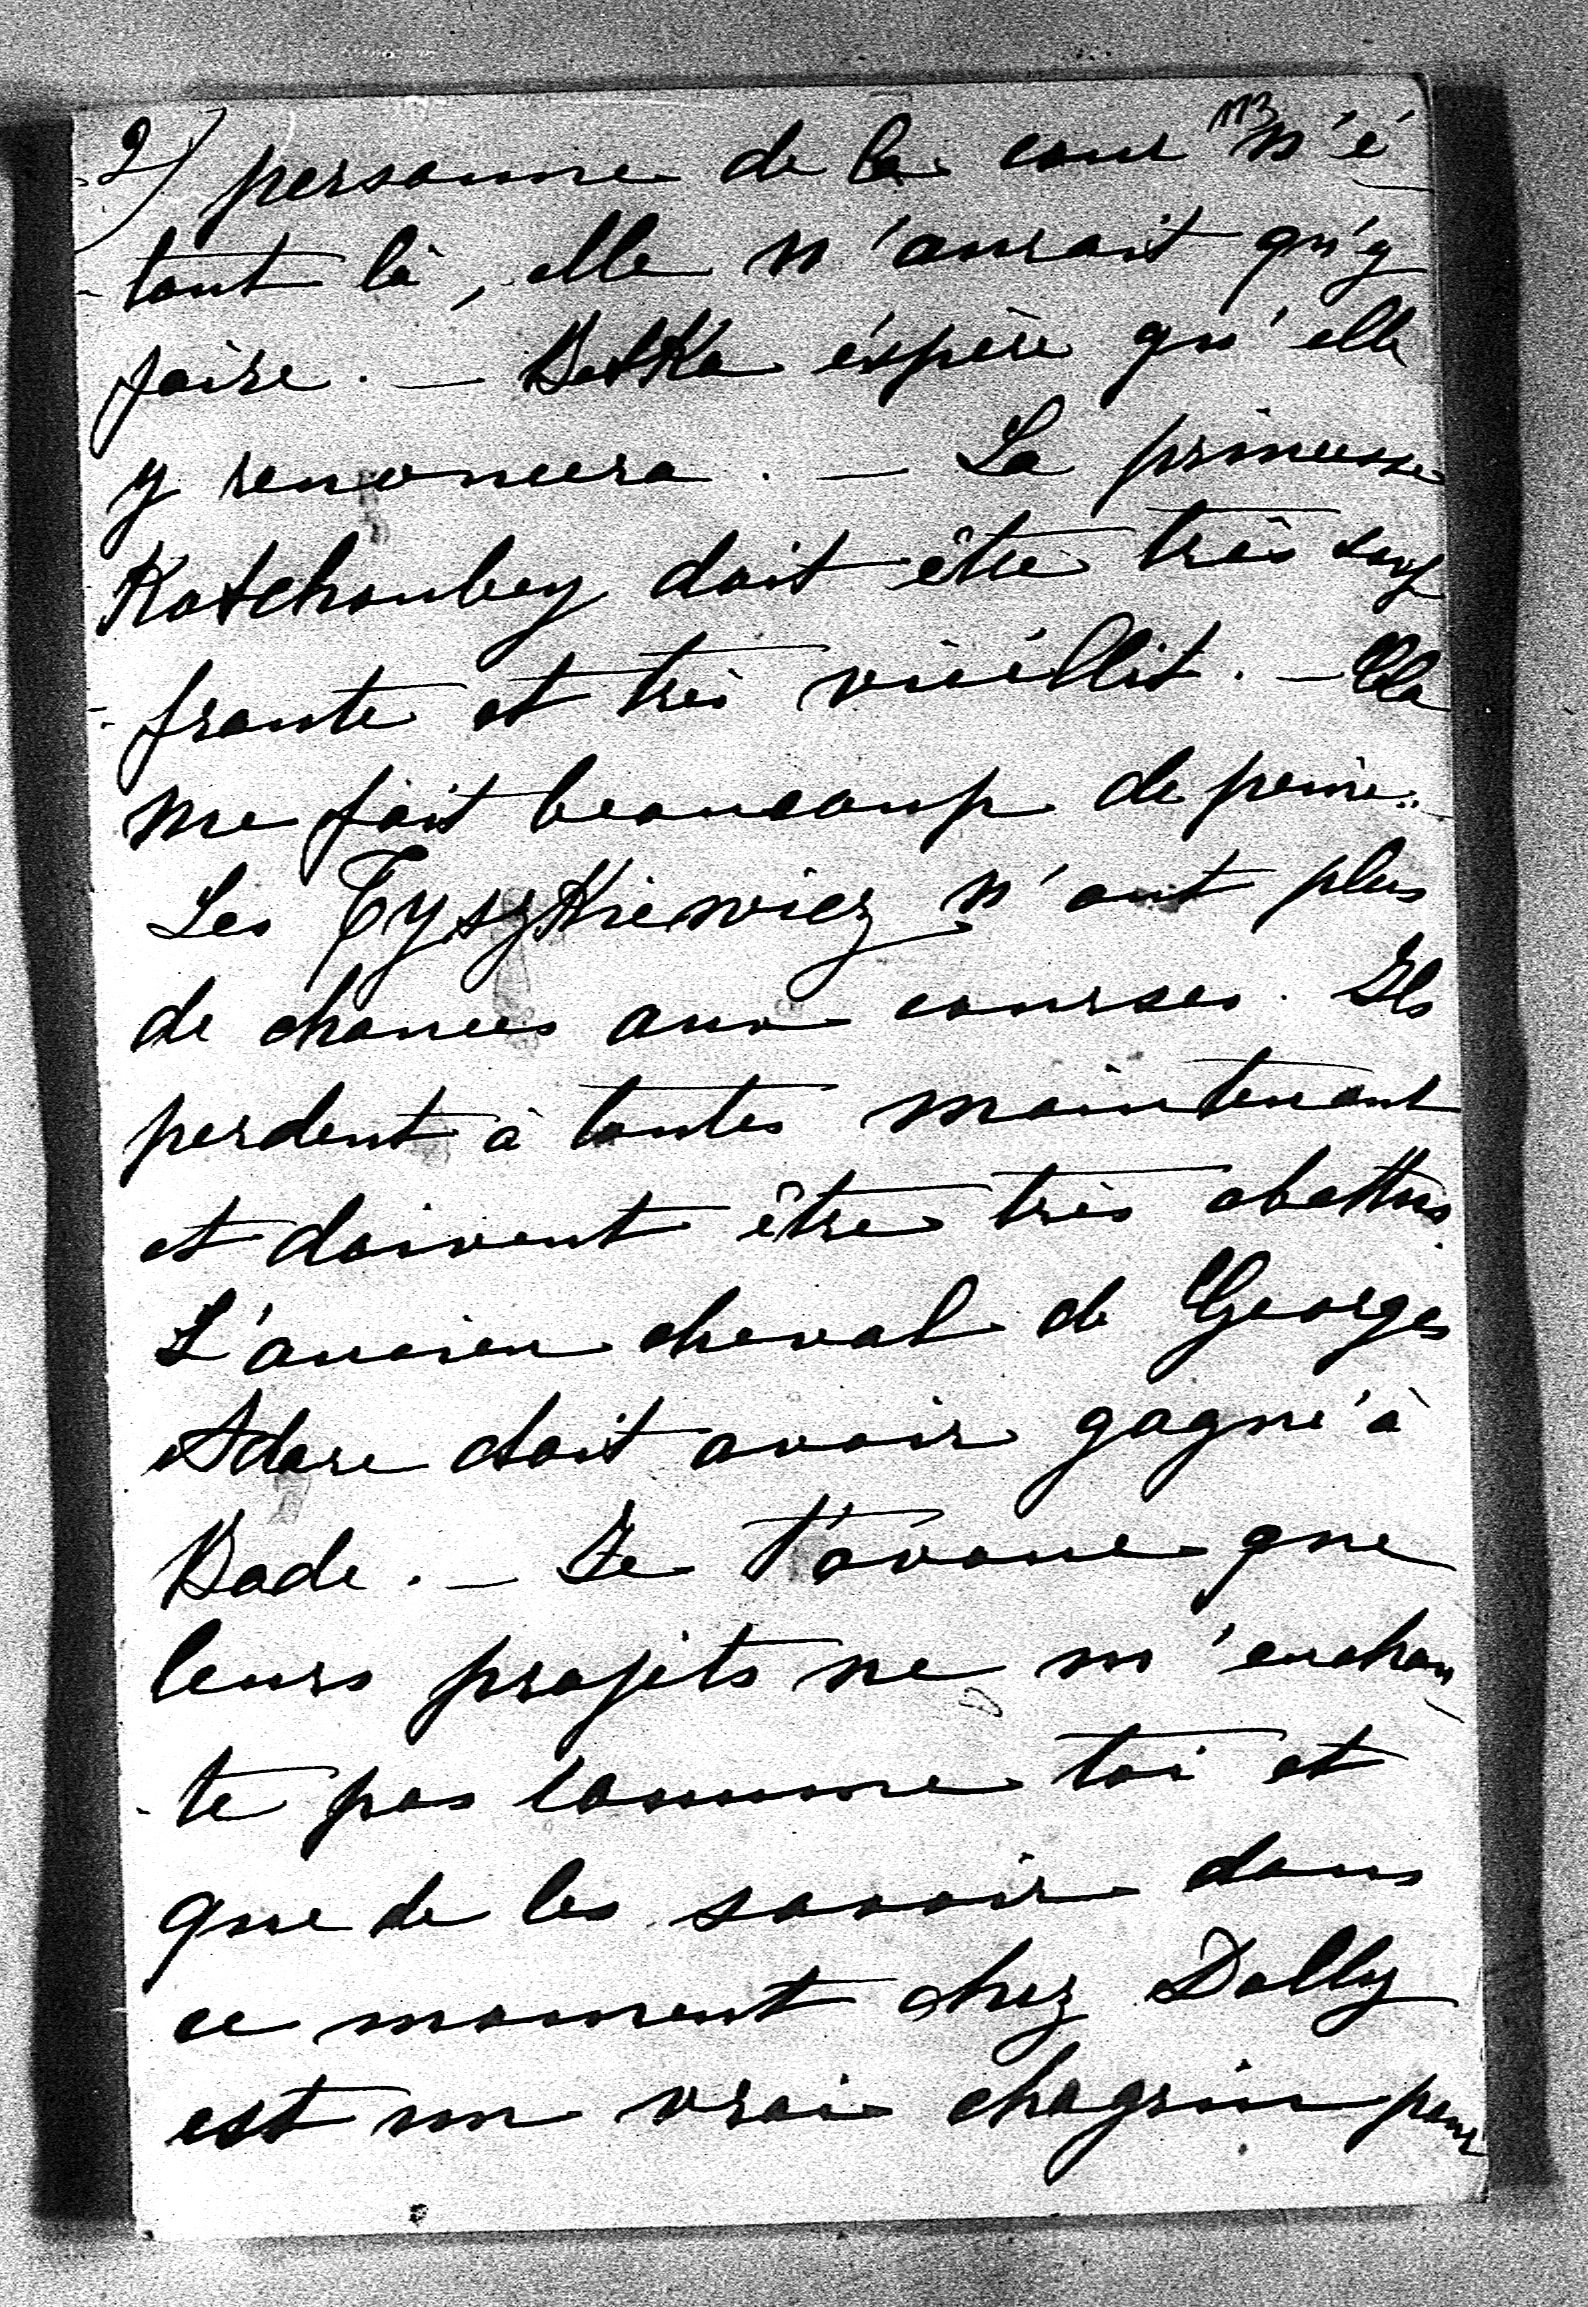 113
2) personne de la cour n'é
tant là, elle n'aurait qu'y
faire. — Betka éspère qu'elle
y renoncera. — La princesse
Kotchoubey doit être très souf
frante et très vieillit. — Cela
me fait beaucoup de peine..
Les Tyszkiewicz n'ont plus
de chances aux courses. Ils
perdent à toutes maintenant
et doivent être très abattus.
L'ancien cheval de Georges
Adare doit avoir gagné à
Bade. — Je t'avoue que
leurs projets ne m'enchan
te pas comme toi et
que de les savoir dans
ce moment chez Dolly
est un vrai chagrin pour